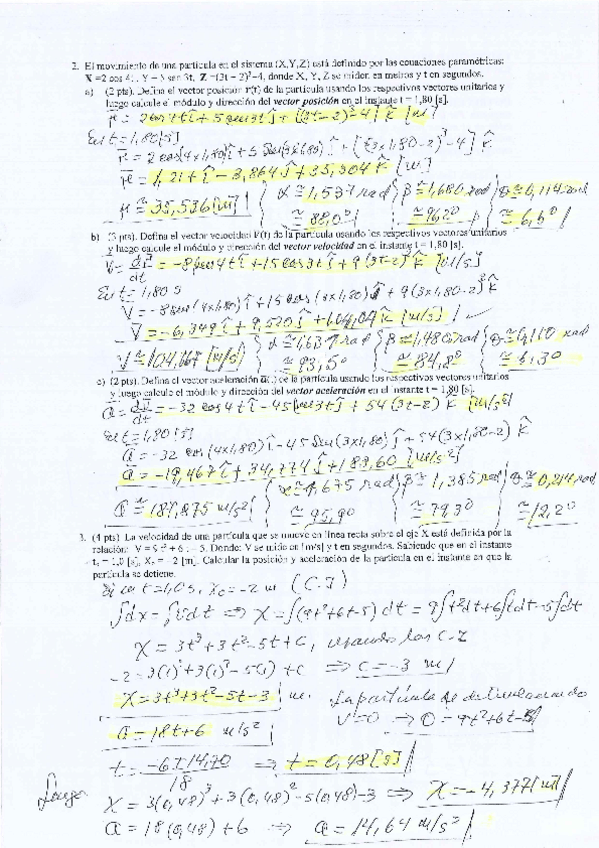 2. El movimiento de una partícula en el sistema (X,Y,Z) está definido por las ecuaciones paramétricas:
X =2 cos 4t, Y = 5 sen 3t, Z =(3t – 2)³-4, donde X, Y, Z se miden en metros y t en segundos.
a) (2 pts). Defina el vector posición r(t) de la partícula usando los respectivos vectores unitarios y
luego calcule el módulo y dirección del vector posición en el instante t = 1,80 [s].
r̄ = 2cos4t î + 5sen3t ĵ + [(3t-2)³-4] k̂ [m]
En t = 1,80[s]
r̄ = 2cos(4x1,80) î + 5 sen(3x1,80) ĵ + [(3x1,80-2)³-4] k̂
r̄ = 1,21 î - 3,864 ĵ + 35,304 k̂ [m]
r ≅ 35,536 [m] α ≅ 1,537 rad β ≅ 1,680 rad θ ≅ 0,114 rad
≅ 88,0° ≅ 96,2° ≅ 6,6°
b) (3 pts). Defina el vector velocidad V(t) de la partícula usando los respectivos vectores unitarios
y luego calcule el módulo y dirección del vector velocidad en el instante t = 1,80 [s].
v̄ = dr̄/dt = -8sen4t î + 15cos3t ĵ + 9(3t-2)² k̂ [m/s]
En t = 1,80 s
v̄ = -8sen(4x1,80) î + 15 cos(3x1,80) ĵ + 9(3x1,80-2)² k̂
v̄ = -6,349 î + 9,520 ĵ + 104,04 k̂ [m/s]
v ≅ 104,667 [m/s] α ≅ 1,637 rad β ≅ 1,480 rad θ ≅ 0,110 rad
≅ 93,5° ≅ 84,8° ≅ 6,3°
c) (2 pts). Defina el vector aceleración a(t) de la partícula usando los respectivos vectores unitarios
y luego calcule el módulo y dirección del vector aceleración en el instante t = 1,80 [s].
ā = dv̄/dt = -32 cos4t î - 45sen3t ĵ + 54(3t-2) k̂ [m/s²]
En t = 1,80 [s]
ā = -32 cos(4x1,80) î - 45 sen(3x1,80) ĵ + 54(3x1,80-2) k̂
ā = -19,467 î + 34,774 ĵ + 183,60 k̂ [m/s²]
a ≅ 187,875 m/s² α ≅ 1,675 rad β ≅ 1,385 rad θ ≅ 0,214 rad
≅ 95,9° ≅ 79,3° ≅ 12,2°
3. (4 pts) La velocidad de una partícula que se mueve en línea recta sobre el eje X está definida por la
relación: V = 9 t² + 6 t – 5. Donde: V se mide en [m/s] y t en segundos. Sabiendo que en el instante
t₀ = 1,0 [s], X₀ = –2 [m]. Calcular la posición y aceleración de la partícula en el instante en que la
partícula se detiene.
Si en t = 1,0 s, x₀ = -2 m (C.I)
∫dx = ∫v dt ⇒ X = ∫(9t²+6t-5) dt = 9∫t²dt + 6∫tdt - 5∫dt
X = 3t³ + 3t² - 5t + C, usando las C.I
-2 = 3(1)³ + 3(1)² - 5(1) + C ⇒ C = -3 m
X = 3t³+3t²-5t-3 m. La partícula se detiene cuando
a = 18t+6 m/s² V=0 → 0 = 9t²+6t-5
t = (-6±14,70)/18 ⇒ t = 0,48 [s]
Luego X = 3(0,48)³ + 3(0,48)² - 5(0,48) - 3 ⇒ X = -4,377 [m]
a = 18(0,48) + 6 ⇒ a = 14,64 m/s²